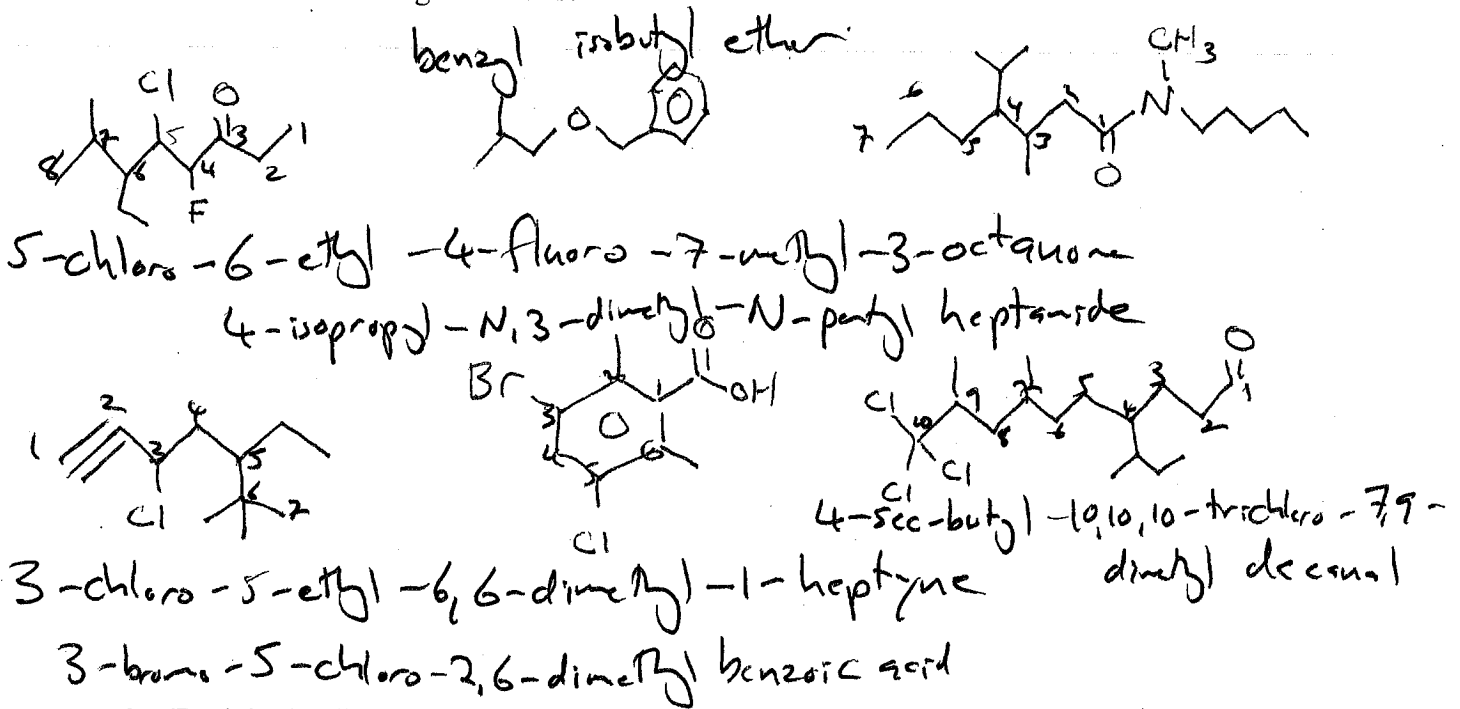 benzyl isobutyl ether
CH3
Cl
O
O
N
O
F
8 7 6 5 4 3 2 1
7 6 5 4 3 2
5-chloro-6-ethyl-4-fluoro-7-methyl-3-octanone
4-isopropyl-N,3-dimethyl-N-pentyl heptamide
Br
O
OH
O
Cl
Cl
Cl
Cl
Cl
1 2 3 4 5 6 7
1 2 3 4 5 6
10 9 8 7 6 5 4 3 2 1
4-sec-butyl-10,10,10-trichloro-7,9-
dimethyl decanal
3-chloro-5-ethyl-6,6-dimethyl-1-heptyne
3-bromo-5-chloro-2,6-dimethyl benzoic acid